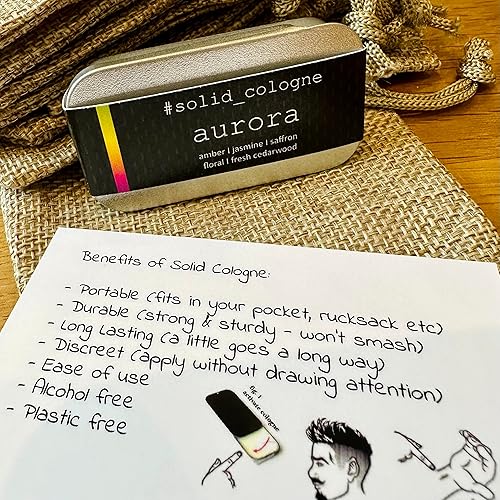 #solid_cologne
aurora
amber | jasmine | saffron
floral | fresh cedarwood
Benefits of Solid Cologne:
- Portable (fits in your pocket, rucksack etc)
- Durable (strong & sturdy - won't smash)
- Long Lasting (a little goes a long way)
- Discreet (apply without drawing attention)
- Ease of use
- Alcohol free
- Plastic free
fig. 1
activate cologne